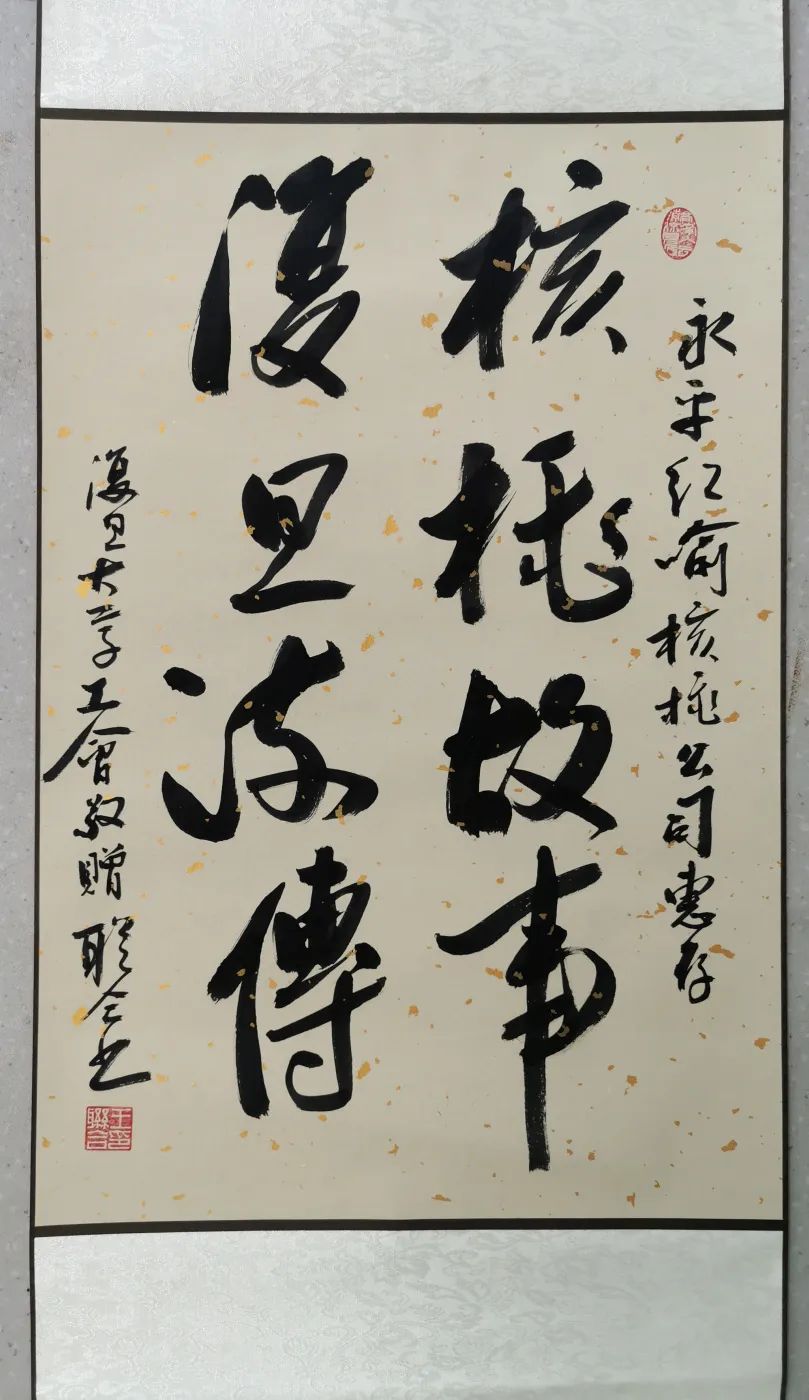 永平红喻核桃公司惠存
核桃故事
復旦流傳
復旦大学工會敬贈 联合书
王印聯合